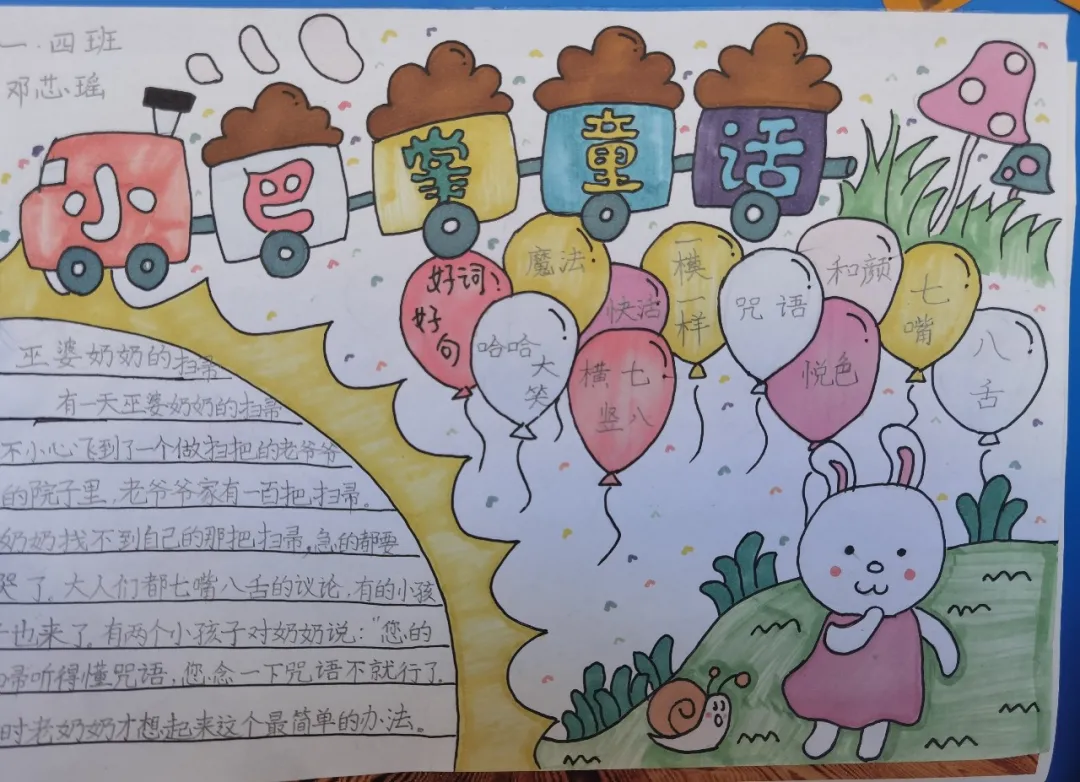 一.四班
邓芯瑶
小巴掌童话
好词
好句
魔法
哈哈
大笑
快活
横七
竖八
一模
一样
咒语
悦色
和颜
七
嘴
八
舌
巫婆奶奶的扫帚
有一天巫婆奶奶的扫帚
不小心飞到了一个做扫把的老爷爷
的院子里,老爷爷家有一百把扫帚。
奶奶找不到自己的那把扫帚,急的都要
哭了。大人们都七嘴八舌的议论,有的小孩
也来了。有两个小孩子对奶奶说:"您的
帚听得懂咒语,您念一下咒语不就行了
时老奶奶才想起来这个最简单的办法。